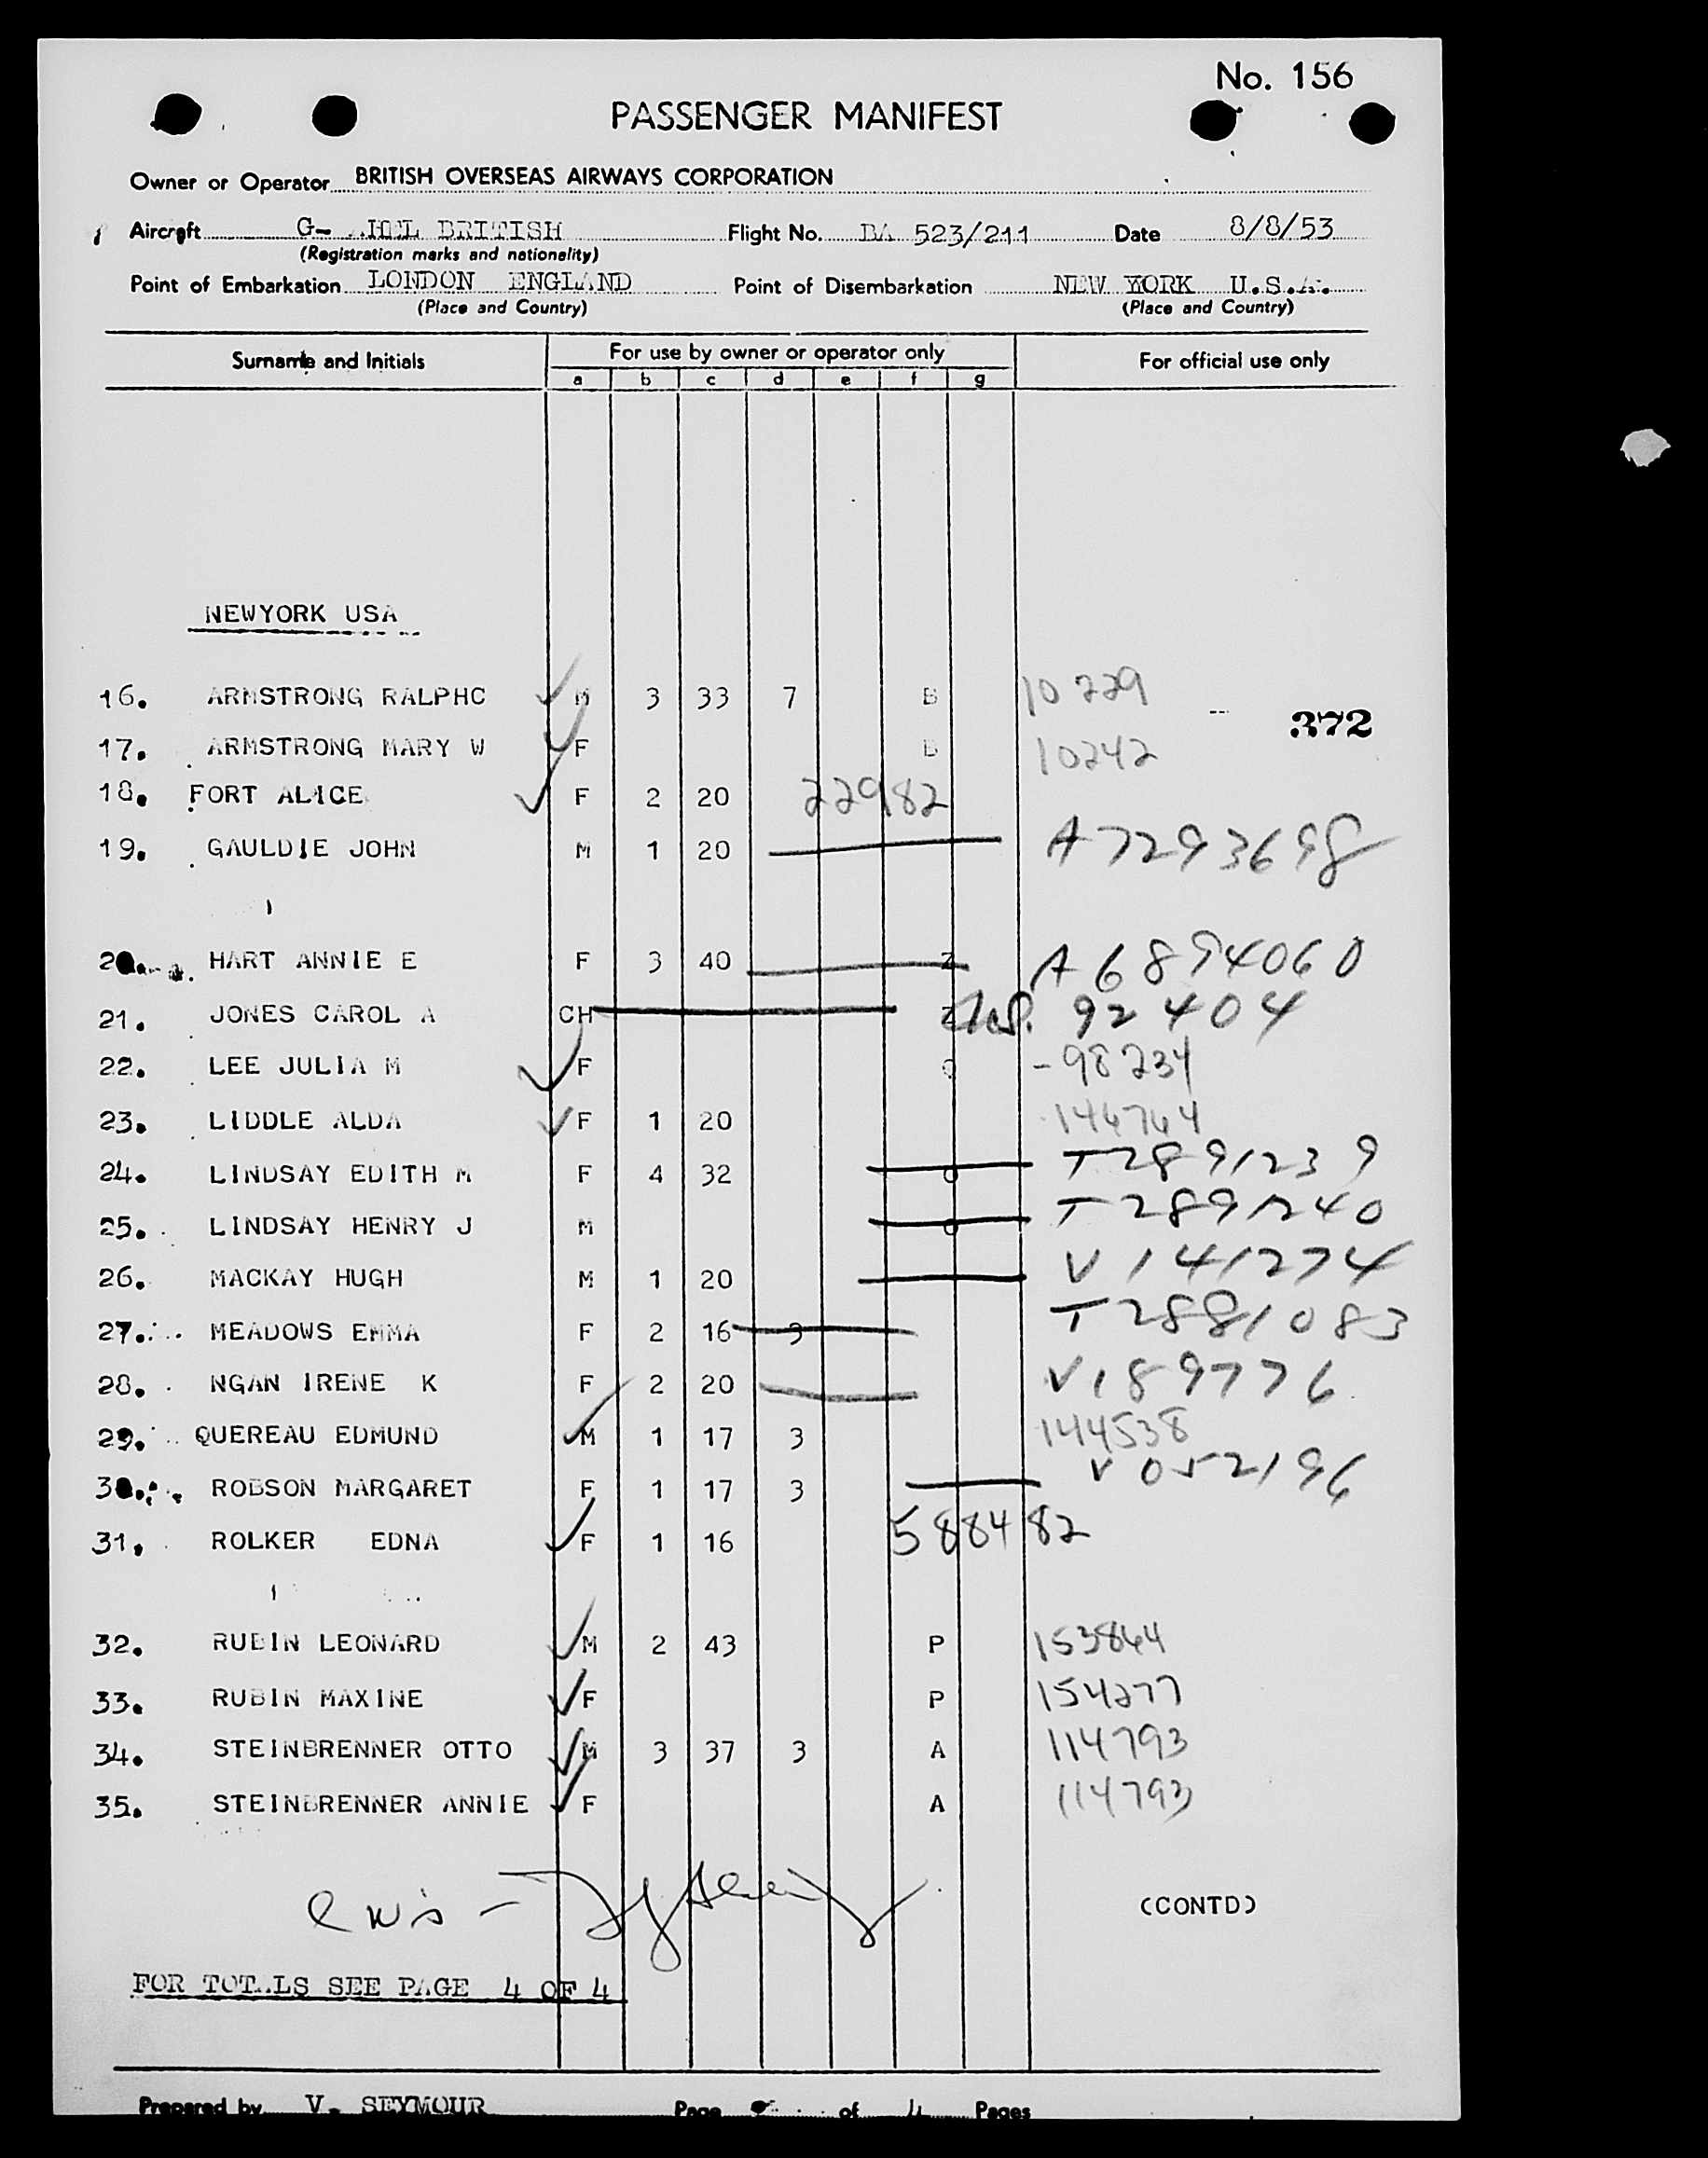 No. 156
PASSENGER MANIFEST
Owner or Operator BRITISH OVERSEAS AIRWAYS CORPORATION
Aircraft G- HEL BRITISH Flight No. BA 523/211 Date 8/8/53
(Registration marks and nationality)
Point of Embarkation LONDON ENGLAND Point of Disembarkation NEW YORK U.S.A.
(Place and Country) (Place and Country)
Surname and Initials For use by owner or operator only For official use only
a b c d e f g
NEWYORK USA
16. ARMSTRONG RALPHC M 3 33 7 B 10229
372
17. ARMSTRONG MARY W F B 10242
18. FORT ALICE F 2 20 22982
19. GAULDIE JOHN M 1 20 A7293698
20. HART ANNIE E F 3 40 Z A6894060
21. JONES CAROL A CH Z 92404
22. LEE JULIA M F Q -98234
23. LIDDLE ALDA F 1 20 144744
24. LINDSAY EDITH M F 4 32 O T2891239
25. LINDSAY HENRY J M O T2891240
26. MACKAY HUGH M 1 20 V141274
27. MEADOWS EMMA F 2 16 3 T2881083
28. NGAN IRENE K F 2 20 V189776
29. QUEREAU EDMUND M 1 17 3 144538
30. ROBSON MARGARET F 1 17 3 V052196
31. ROLKER EDNA F 1 16 588482
32. RUBIN LEONARD M 2 43 P 153844
33. RUBIN MAXINE F P 154277
34. STEINBRENNER OTTO M 3 37 3 A 114793
35. STEINBRENNER ANNIE F A 114793
(CONTD)
FOR TOTALS SEE PAGE 4 OF 4
Prepared by V. SEYMOUR Page of 4 Pages